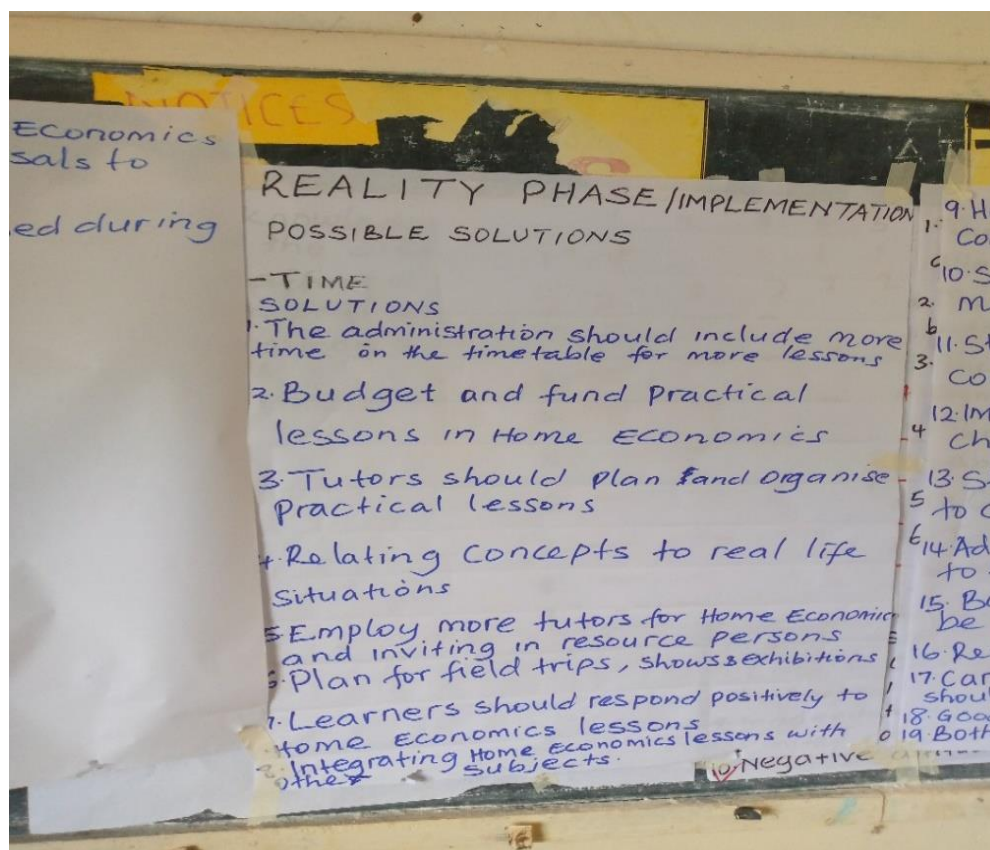 NOTICES
Economics
sals to
ed during
REALITY PHASE/IMPLEMENTATION
POSSIBLE SOLUTIONS
-TIME
SOLUTIONS
1. The administration should include more
time on the timetable for more lessons
2. Budget and fund Practical
lessons in Home Economics
3. Tutors should Plan and Organise
Practical lessons
4. Relating Concepts to real life
Situations
5. Employ more tutors for Home Economic
and inviting in resource persons
6. Plan for field trips, shows & exhibitions
7. Learners should respond positively to
Home Economics lessons
8. Integrating Home Economics lessons with
other Subjects.
10. Negative
1.
2.
3.
4
5
6
9. H
Co
10. S
m
11. St
Co
12. Im
Ch
13. S
to
14. Ad
to
15. B
be
16. Re
17. Can
shou
18. Goo
19. Both